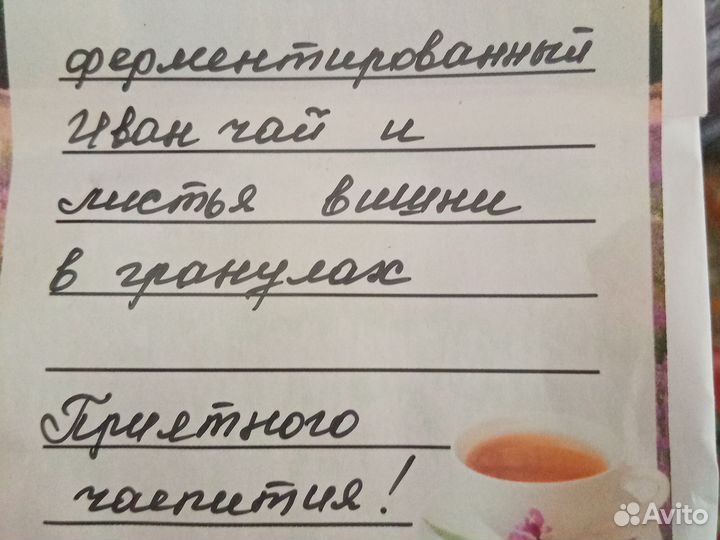 ферментированный
Иван чай и
листья вишни
в гранулах
Приятного
чаепития!
Avito